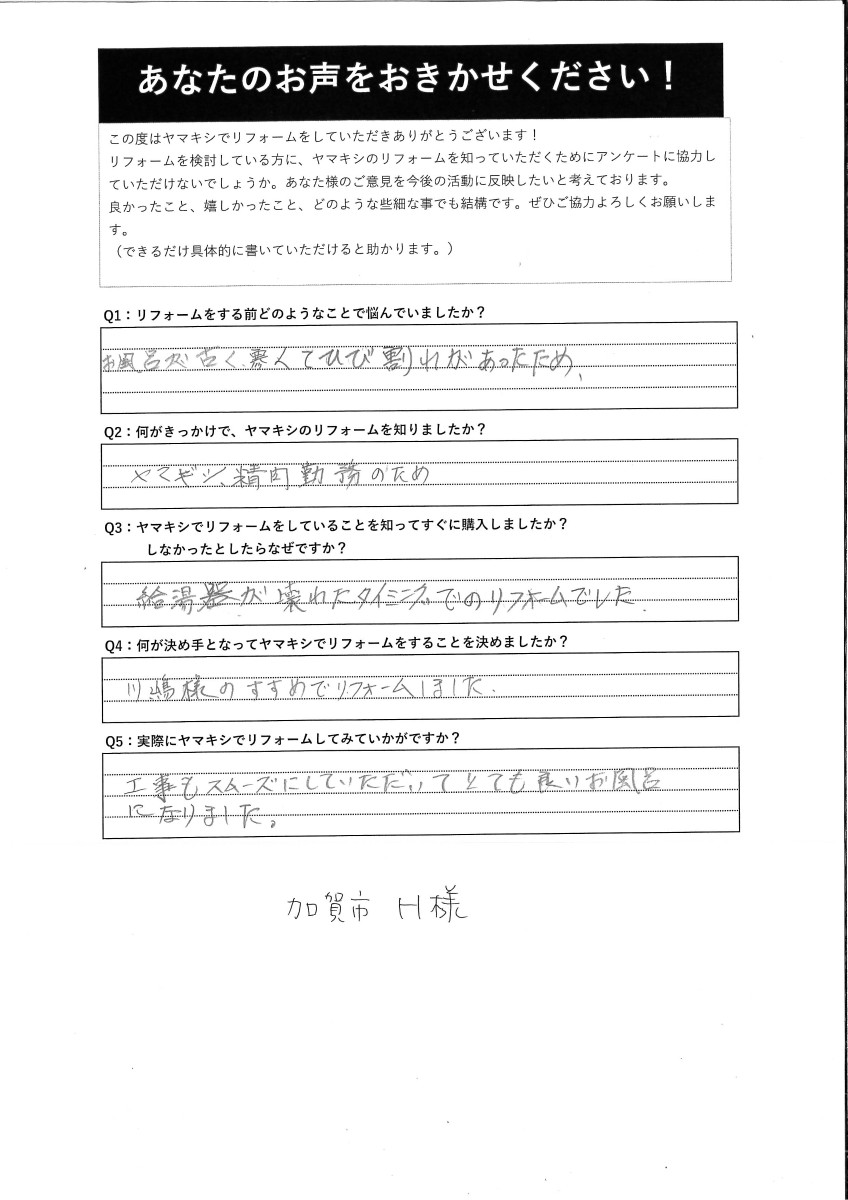 あなたのお声をおきかせください！
この度はヤマキシでリフォームをしていただきありがとうございます！
リフォームを検討している方に、ヤマキシのリフォームを知っていただくためにアンケートに協力し
ていただけないでしょうか。あなた様のご意見を今後の活動に反映したいと考えております。
良かったこと、嬉しかったこと、どのような些細な事でも結構です。ぜひご協力よろしくお願いしま
す。
（できるだけ具体的に書いていただけると助かります。）
Q1：リフォームをする前どのようなことで悩んでいましたか？
お風呂が古く、寒くてひび割れがあったため、
Q2：何がきっかけで、ヤマキシのリフォームを知りましたか？
ヤマギシ、精肉勤務のため
Q3：ヤマキシでリフォームをしていることを知ってすぐに購入しましたか？
しなかったとしたらなぜですか？
給湯器が壊れたタイミングでのリフォームでした.
Q4：何が決め手となってヤマキシでリフォームをすることを決めましたか？
川嶋様のすすめでリフォームしました.
Q5：実際にヤマキシでリフォームしてみていかがですか？
工事もスムーズにしていただいてとても良いお風呂
になりました。
加賀市 H様